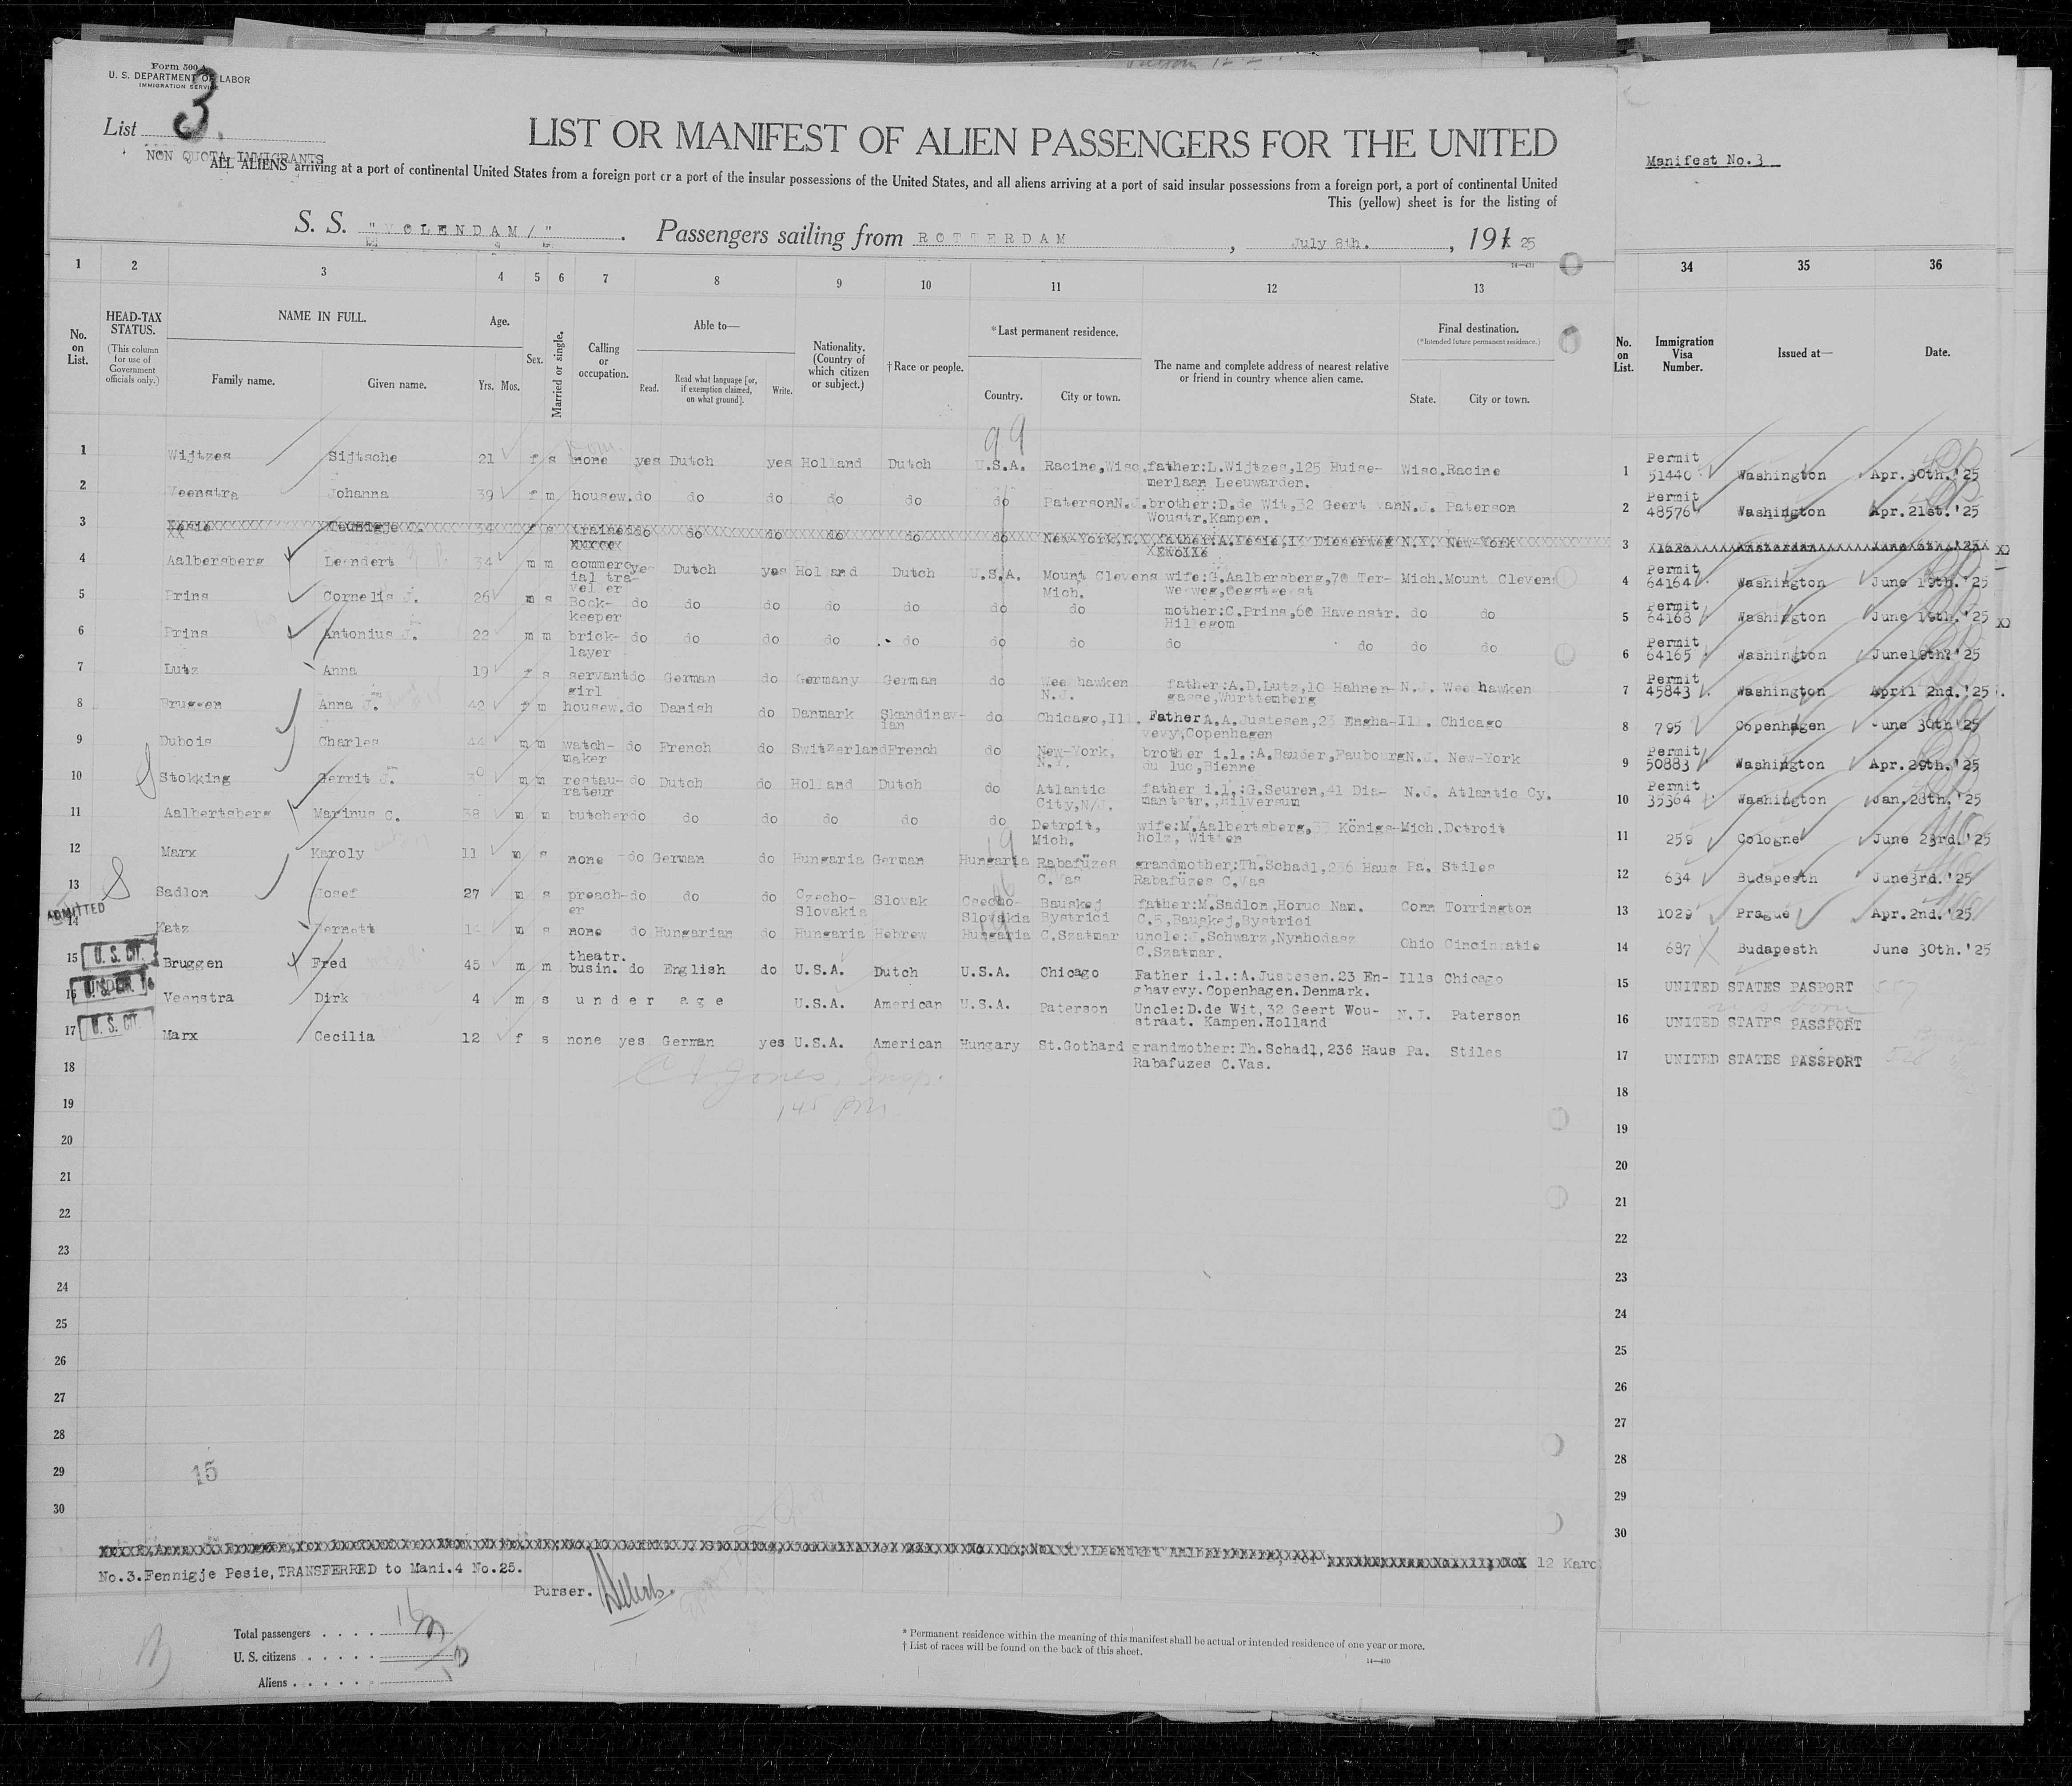 Form 500 A
U. S. DEPARTMENT OF LABOR
IMMIGRATION SERVICE
List 3.
NON QUOTA IMMIGRANTS
LIST OR MANIFEST OF ALIEN PASSENGERS FOR THE UNITED
Manifest No.3
ALL ALIENS arriving at a port of continental United States from a foreign port or a port of the insular possessions of the United States, and all aliens arriving at a port of said insular possessions from a foreign port, a port of continental United
This (yellow) sheet is for the listing of
S. S. "VOLENDAM/" . Passengers sailing from ROTTERDAM , July 8th. , 191 25
1 2 3 4 5 6 7 8 9 10 11 12 13 34 35 36
No. on List.
HEAD-TAX STATUS.
(This column for use of Government officials only.)
NAME IN FULL.
Family name. Given name.
Age.
Yrs. Mos.
Sex.
Married or single.
Calling or occupation.
Able to—
Read. Read what language [or, if exemption claimed, on what ground]. Write.
Nationality. (Country of which citizen or subject.)
†Race or people.
*Last permanent residence.
Country. City or town.
The name and complete address of nearest relative or friend in country whence alien came.
Final destination.
(*Intended future permanent residence.)
State. City or town.
No. on List.
Immigration Visa Number.
Issued at—
Date.
1 Wijtzes Sijtsche 21 f s none yes Dutch yes Holland Dutch U.S.A. Racine,Wisc. father:L.Wijtzes,125 Huize- Wisc. Racine 1 Permit 51440 Washington Apr.30th.'25
merlaan Leeuwarden.
2 Veenstra Johanna 39 f m housew. do do do do do do Paterson N.J. brother:D.de Wit,32 Geert van N.J. Paterson 2 Permit 48576 Washington Apr.21st.'25
Woustr.Kampen.
3 34 f s trained do do do do do do New-York,N. father:A. N.Y. New-York 3
4 Aalbersberg Leendert 34 m m commerc ial tra- vel er yes Dutch yes Holland Dutch U.S.A. Mount Clevens Mich. wife:G.Aalbersberg,70 Ter- Mich. Mount Clevens 4 Permit 64164 Washington June 19th.'25
weeweg,Oegstgeest
5 Prins Cornelis J. 26 m s Book- keeper do do do do do do do mother:C.Prins,60 Havenstr. do do 5 Permit 64168 Washington June 19th.'25
Hillegom
6 Prins Antonius J. 22 m m brick- layer do do do do do do do do do do do 6 Permit 64165 Washington June19th.'25
7 Lutz Anna 19 f s servant girl do German do Germany German do Wee hawken N.J. father:A.D.Lutz,10 Hahnen- N.J. Wee hawken 7 Permit 45843 Washington April 2nd.'25
gasse,Wurttemberg
8 Bruggen Anna J. 42 f m housew. do Danish do Danmark Skandinav- ian do Chicago,Ill. Father A.A.Justesen,23 Engha- Ill. Chicago 8 795 Copenhagen June 30th'25
vevy,Copenhagen
9 Dubois Charles 44 m m watch- maker do French do Switzerland French do New-York, N.Y. brother i.l.:A.Bauder,Faubourg N.J. New-York 9 Permit 50883 Washington Apr.29th.'25
du luc,Bienne
10 Stokking Gerrit J. m m restau- rateur do Dutch do Holland Dutch do Atlantic City,N.J. father i.l.:G.Seuren,41 Dia- N.J. Atlantic Cy. 10 Permit 35364 Washington Jan.28th.'25
mantstr.,Hilversum
11 Aalbertsberg Marinus C. 38 m m butcher do do do do do do Detroit, Mich. wife:M.Aalbertsberg,33 Königs- Mich. Detroit 11 259 Cologne June 23rd.'25
holz, Witten
12 Marx Karoly 11 m s none do German do Hungaria German Hungaria Rabafüzes C.Vas grandmother:Th.Schadl,236 Haus Pa. Stiles 12 634 Budapesth June3rd.'25
Rabafüzes C.Vas
13 Sadlon Josef 27 m s preach- er do do do Czecho- Slovakia Slovak Czecho- Slovakia Bauskej Bystrici father:M.Sadlon,Horuc Nam. Conn Torrington 13 1029 Prague Apr.2nd.'25
C.5,Bauskej,Bystrici
ADMITTED
14 Katz Bernett 14 m s none do Hungarian do Hungaria Hebrew Hungaria C.Szatmar uncle:J.Schwarz,Nynhodasz Ohio Cincinnatie 14 687 Budapesth June 30th.'25
C.Szatmar.
U. S. CIT.
15 Bruggen Fred 45 m m theatr. busin. do English do U.S.A. Dutch U.S.A. Chicago Father i.l.:A.Justesen.23 En- Ills Chicago 15 UNITED STATES PASPORT 557
ghavevy.Copenhagen.Denmark.
UNDER 16
16 Veenstra Dirk 4 m s under age U.S.A. American U.S.A. Paterson Uncle:D.de Wit,32 Geert Wou- N.J. Paterson 16 UNITED STATES PASSPORT
straat. Kampen.Holland
U. S. CIT.
17 Marx Cecilia 12 f s none yes German yes U.S.A. American Hungary St.Gothard grandmother:Th.Schadl,236 Haus Pa. Stiles 17 UNITED STATES PASSPORT 528
Rabafuzes C.Vas.
18 C I Jones, Insp. 18
19 145 PM 19
20 20
21 21
22 22
23 23
24 24
25 25
26 26
27 27
28 28
29 15 29
30 30
12 Karo
No.3.Fennigje Pesie,TRANSFERRED to Mani.4 No.25.
Purser.
Total passengers . . . . 16
U. S. citizens . . . . .
Aliens . . . . . .
* Permanent residence within the meaning of this manifest shall be actual or intended residence of one year or more.
† List of races will be found on the back of this sheet.
14—430